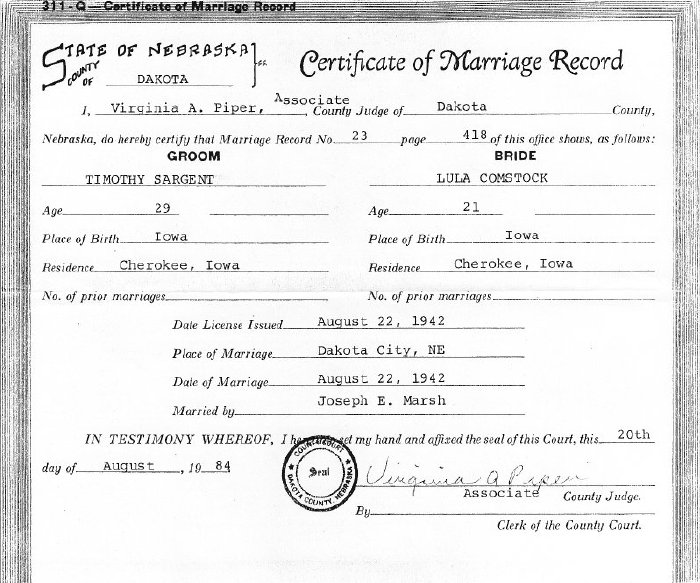 311-Q—Certificate of Marriage Record
STATE OF NEBRASKA } ss.
COUNTY OF DAKOTA
Certificate of Marriage Record
I, Virginia A. Piper, Associate County Judge of Dakota County,
Nebraska, do hereby certify that Marriage Record No. 23 page 418 of this office shows, as follows:
GROOM BRIDE
TIMOTHY SARGENT LULA COMSTOCK
Age 29 Age 21
Place of Birth Iowa Place of Birth Iowa
Residence Cherokee, Iowa Residence Cherokee, Iowa
No. of prior marriages No. of prior marriages
Date License Issued August 22, 1942
Place of Marriage Dakota City, NE
Date of Marriage August 22, 1942
Married by Joseph E. Marsh
IN TESTIMONY WHEREOF, I set my hand and affixed the seal of this Court, this 20th
day of August, 19 84
COUNTY COURT
Seal
DAKOTA COUNTY, NEBRASKA
Virginia A Piper
Associate County Judge.
By
Clerk of the County Court.